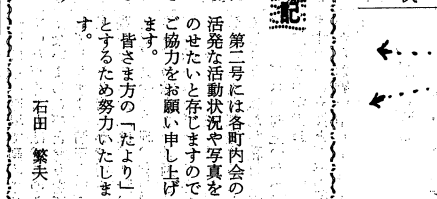 記
第二号には各町内会の
活発な活動状況や写真を
のせたいと存じますので
ご協力をお願い申し上げ
ます。
皆さま方の「たより」
とするため努力いたしま
す。
石田　繁夫